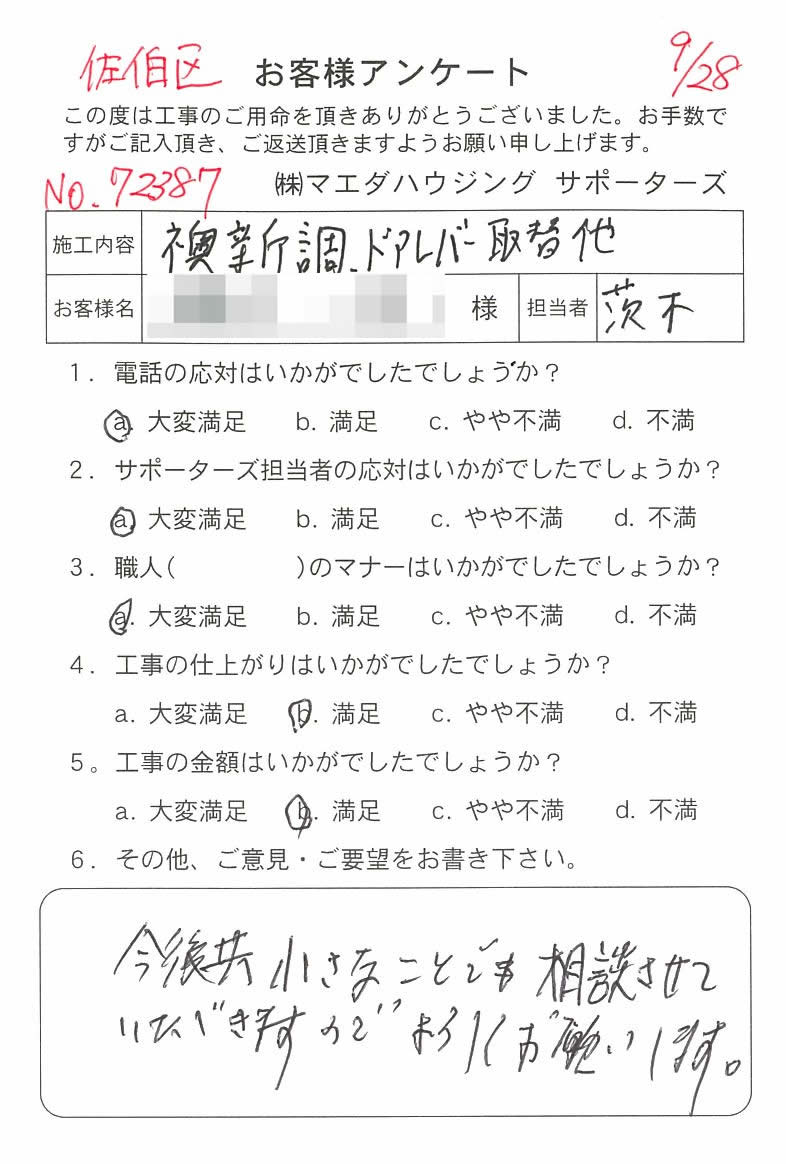 佐伯区 お客様アンケート 9/28
この度は工事のご用命を頂きありがとうございました。お手数で
すがご記入頂き、ご返送頂きますようお願い申し上げます。
NO.72387 ㈱マエダハウジング サポーターズ
施工内容 襖新調、ドアレバー取替他
お客様名 様 担当者 茨木
1. 電話の応対はいかがでしたでしょうか?
a. 大変満足 b. 満足 c. やや不満 d. 不満
2. サポーターズ担当者の応対はいかがでしたでしょうか?
a. 大変満足 b. 満足 c. やや不満 d. 不満
3. 職人( )のマナーはいかがでしたでしょうか?
a. 大変満足 b. 満足 c. やや不満 d. 不満
4. 工事の仕上がりはいかがでしたでしょうか?
a. 大変満足 b. 満足 c. やや不満 d. 不満
5。工事の金額はいかがでしたでしょうか?
a. 大変満足 b. 満足 c. やや不満 d. 不満
6. その他、ご意見・ご要望をお書き下さい。
今後共小さなことでも相談させて
いただきますのでよろしくお願いします。